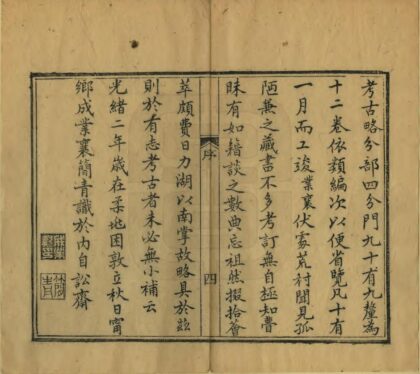 考古略分部四分門九十有九釐為
十二卷依類編次以便省覽凡十有
一月而工竣業襄伏處荒村聞見孤
陋兼之藏書不多考訂無自極知瞢
昧有如籍談之數典忘祖然掇拾薈
序
四
萃頗費日力湖以南掌故略具於茲
則於有志考古者未必無小補云
光緒二年歲在柔兆困敦立秋日甯
鄉成業襄簡青識於內自訟齋